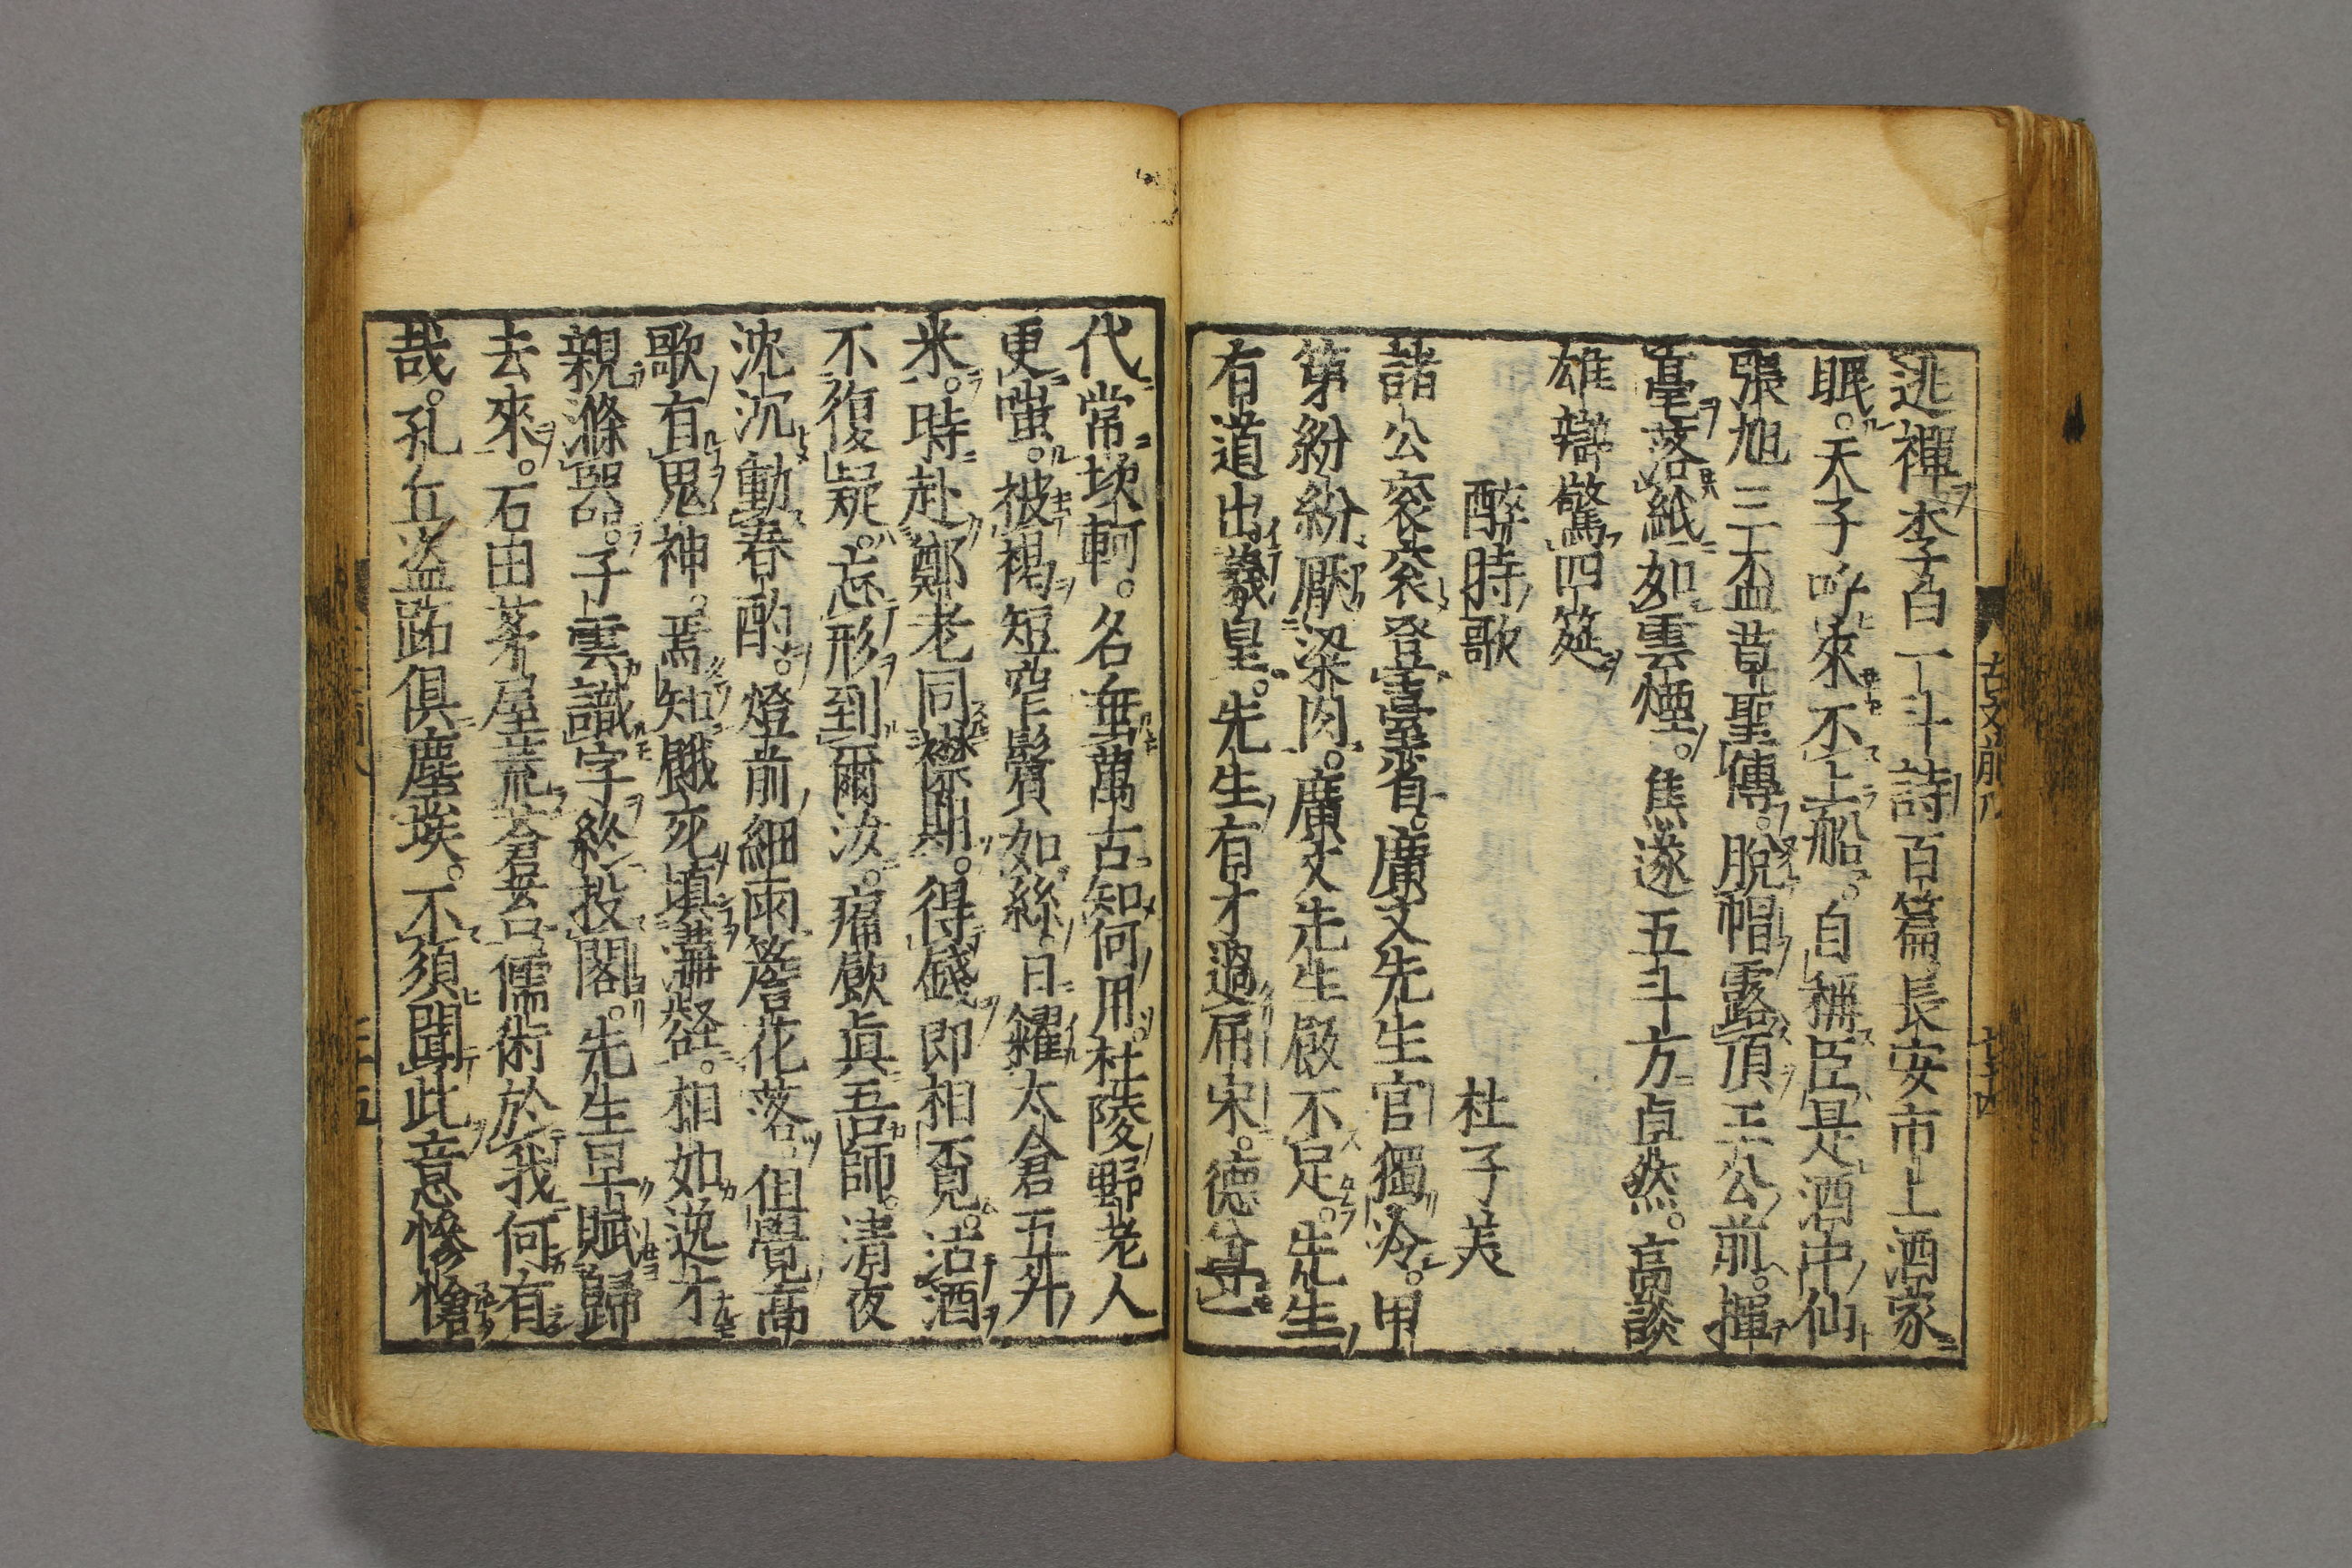 逃禪李白一斗詩百篇長安市上酒家
眠。天子呼來不上船。自稱臣是酒中仙
張旭三盃草聖傳。脫帽露頂王公前。揮
毫落紙如雲煙。焦遂五斗方卓然。高談
雄辯驚四筵
醉時歌 杜子美
諸公袞袞登臺省。廣文先生官獨冷。甲
第紛紛厭梁肉。廣文先生飯不足。先生
有道出羲皇。先生有才過屈宋。德尊一
代常坎軻。名垂萬古知何用。杜陵野老人
更嗤。被褐短窄鬢如絲。日糴太倉五升
米。時赴鄭老同襟期。得錢即相覓。沽酒
不復疑。忘形到爾汝。痛飲眞吾師。清夜
沈沉動春酌。燈前細雨簷花落。但覺高
歌有鬼神。焉知餓死塡溝壑。相如逸才
親滌器。子雲識字終投閣。先生早賦歸
去來。石田茅屋荒蒼苔儒術於我何有
哉。孔丘盜跖俱塵埃。不須聞此意慘愴